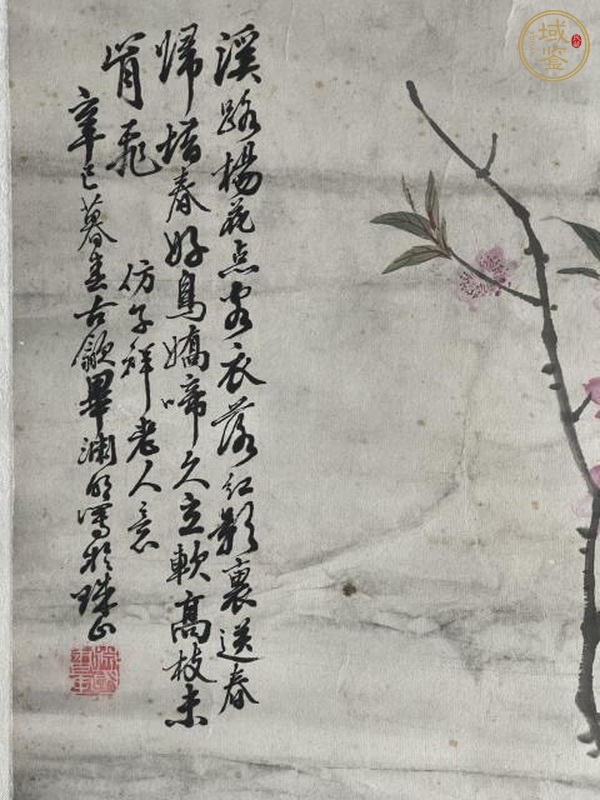 溪路楊花点客衣落红影裏送春
歸墙春好鳥嬌啼久立軟高枝未
肯飛
仿子祥老人意
辛巳暮春古歙畢渊明写於珠山
域鉴